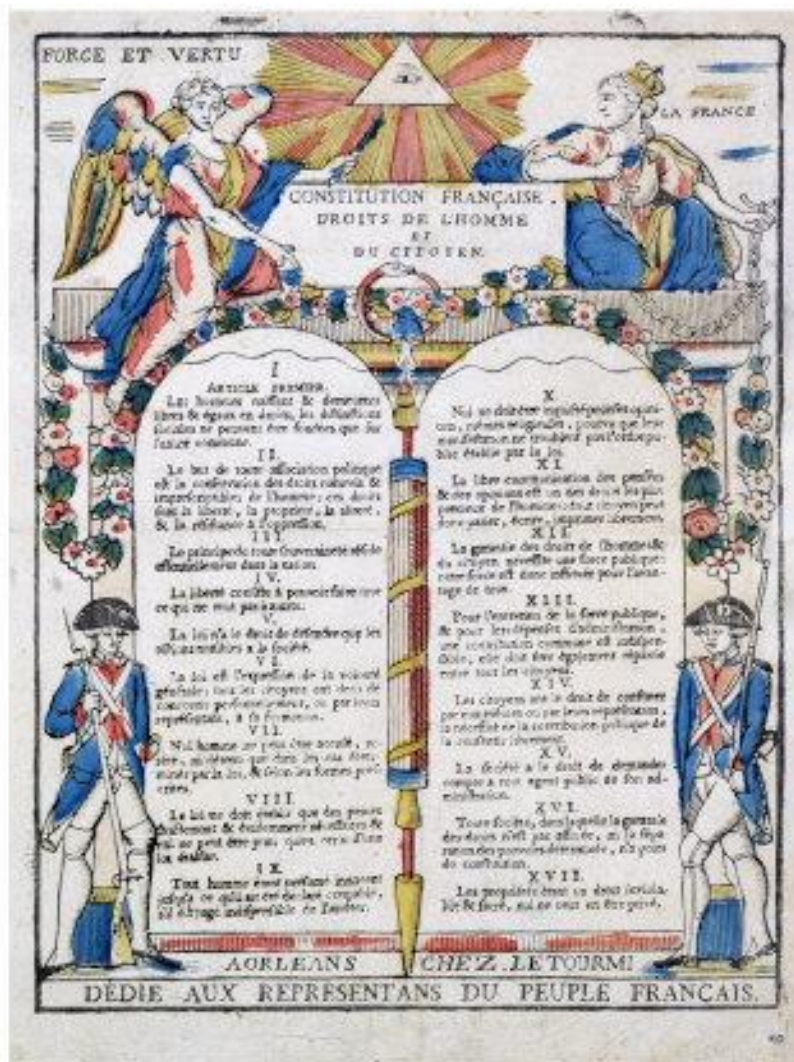 FORCE ET VERTU
LA FRANCE
CONSTITUTION FRANÇAISE.
DROITS DE L'HOMME
ET
DU CITOYEN.
I
ARTICLE PREMIER.
Les hommes naissent & demeurent
libres & égaux en droits, les distinctions
sociales ne peuvent être fondées que sur
l'utilité commune.
II.
Le but de toute association politique
est la conservation des droits naturels &
imprescriptibles de l'homme; ces droits
sont la liberté, la propriété, la sûreté,
& la résistance à l'oppression.
III.
Le principe de toute souveraineté réside
essentiellement dans la nation.
IV.
La liberté consiste à pouvoir faire tout
ce qui ne nuit pas à autrui.
V.
La loi n'a le droit de défendre que les
actions nuisibles à la société.
VI.
La loi est l'expression de la volonté
générale; tous les citoyens ont droit de
concourir personnellement, ou par leurs
représentans, à sa formation.
VII.
Nul homme ne peut être accusé,
ni détenu que dans les cas déter-
minés par la loi, & selon les formes pres-
crites.
VIII.
La loi ne doit établir que des peines
strictement & évidemment nécessaires &
nul ne peut être puni qu'en vertu d'une
loi établie.
IX.
Tout homme étant présumé innocent
jusqu'à ce qu'il ait été déclaré coupable,
X.
Nul ne doit être inquiété pour ses opini-
ons, mêmes religieuses, pourvu que leur
manifestation ne troublent pas l'ordre pu-
blic établie par la loi.
XI.
La libre communication des pensées
& des opinions est un des droits les plus
précieux de l'homme: tout citoyen peut
donc parler, écrire, imprimer librement.
XII.
La garantie des droit de l'homme &
du citoyen nécessite une force publique:
cette force est donc instituée pour l'avan-
tage de tous.
XIII.
Pour l'entretien de la force publique,
& pour les dépenses d'administration,
une contribution commune est indispen-
sable, elle doit être également répartie
entre tous les citoyens.
XIV.
Les citoyens ont le droit de constater
par eux mêmes ou par leurs représentans,
la nécessité de la contribution publique de
la consentir librement.
XV.
La société a le droit de demander
compte à tout agent public de son ad-
ministration.
XVI.
Toute société, dans laquelle la garantie
des droits n'est pas assurée, ni la sépa-
ration des pouvoirs déterminée, n'a point
de constitution.
XVII.
Les propriétés étant un droit inviola-
ble & sacré, nul ne peut en être privé.
A ORLEANS CHEZ LETOURMI
DÉDIÉ AUX REPRESENTANS DU PEUPLE FRANÇAIS.